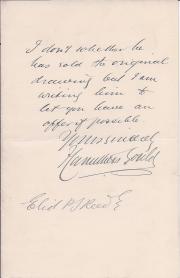 I don't whether he
has sold the original
drawing but I am
writing him to
let you have an
offer if possible.
Yours sincerely